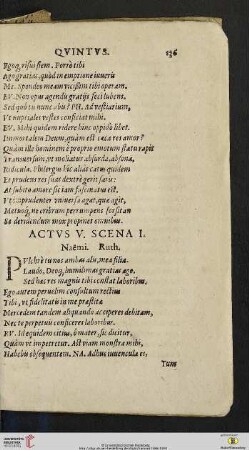 QVINTVS. 136
Ego risus siem. Ferre tibi
Ago gratias, quòd in emptione iuveris
Me. Spondeo meam vicissim tibi operam,
EV. Non opus agendis gratijs sed iubens,
Sed quò tu nunc abis? PH. Ad vestiarium,
Vt nuptiales vestes conficiat mihi.
EV. Mihi quidem ridere hinc opposio libet.
Immortalem Deum, quàm ista caca res amor?
Quàm ille hominem è proprio emotum statu rapit
Transversum, ut moliatur absurda, absona,
Ridicula. Philergus hic aliàs catus quidem
Et prudens res suas dextrè gerit suas:
At subito amore sic iam fascinatus est,
Vt imprudenter universa agat, que agit,
Metuoq́, ne crebram per rumpens fossitan
Se derideculum mox propinet omnibus.
ACTVS V. SCENA I.
Naëmi. Ruth.
PVlchrè tu nos ambas alis, mea filia.
Laudo, Deoq́, immürmas gratias age.
Sed hac res magnis tibi constat laboribus.
Ego autem pervelim consultum rectius
Tibi, vt fidelitatis in me praestitæ
Mercedem tandem aliquando acciperes debitam,
Nec te perpetuis conficeres laboribus.
EV. Id equidem citius, ô mater, sic dicitur,
Quàm vt impetretur. At viam monstra mihi,
Habebis obsequentem. NA. Adhuc iuvencula es,
Tum